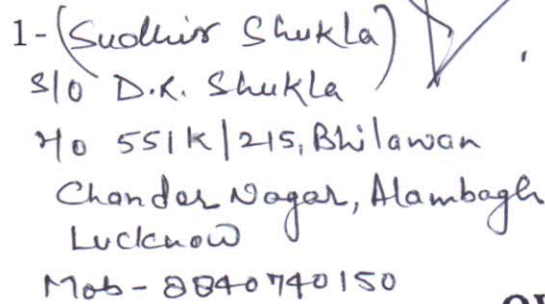 1-(Sudhir Shukla)
S/o D.K. Shukla
R/o 551K/215, Bhilawan
Chander Nagar, Alambagh
Lucknow
Mob - 8840740150